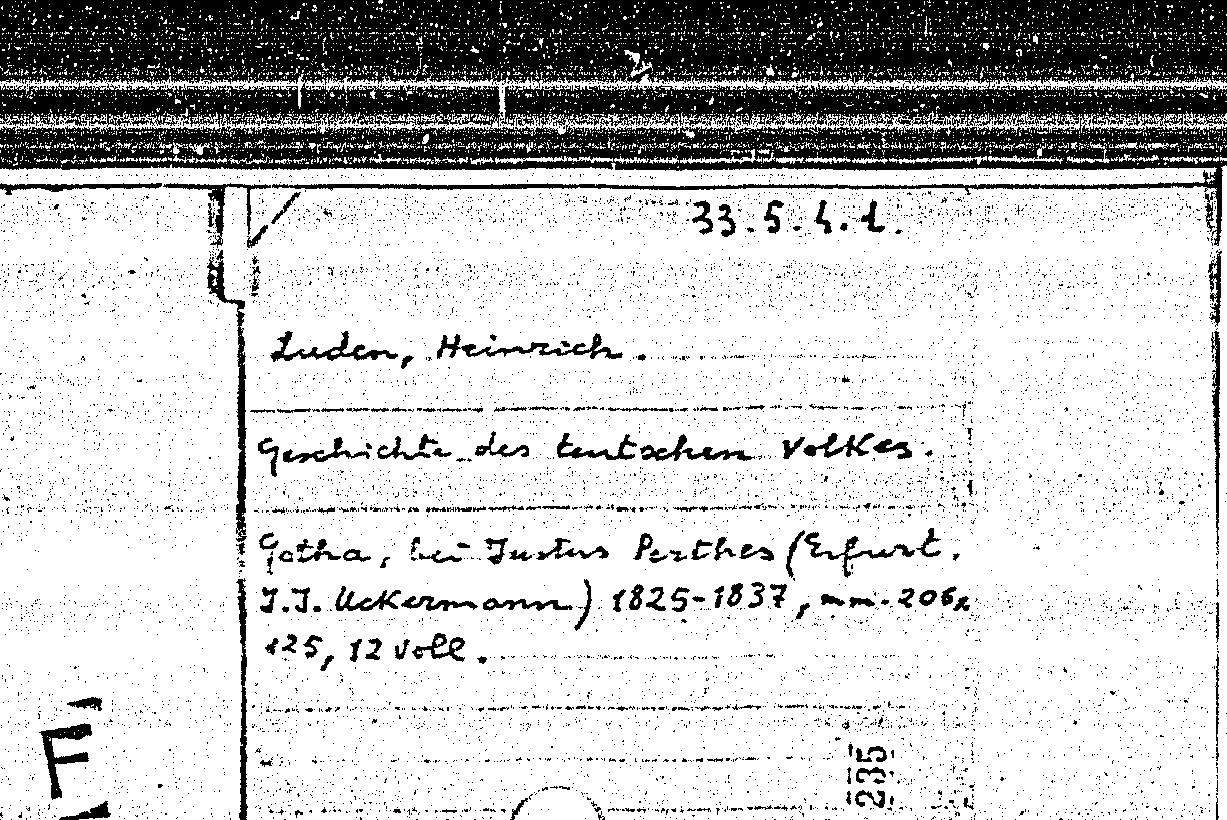 33.5.4.1.
Luden, Heinrich.
Geschichte des teutschen Volkes.
Gotha, bei Justus Perthes (Erfurt.
J.J. Uckermann) 1825-1837, mm. 206x
125, 12 voll.
F
235